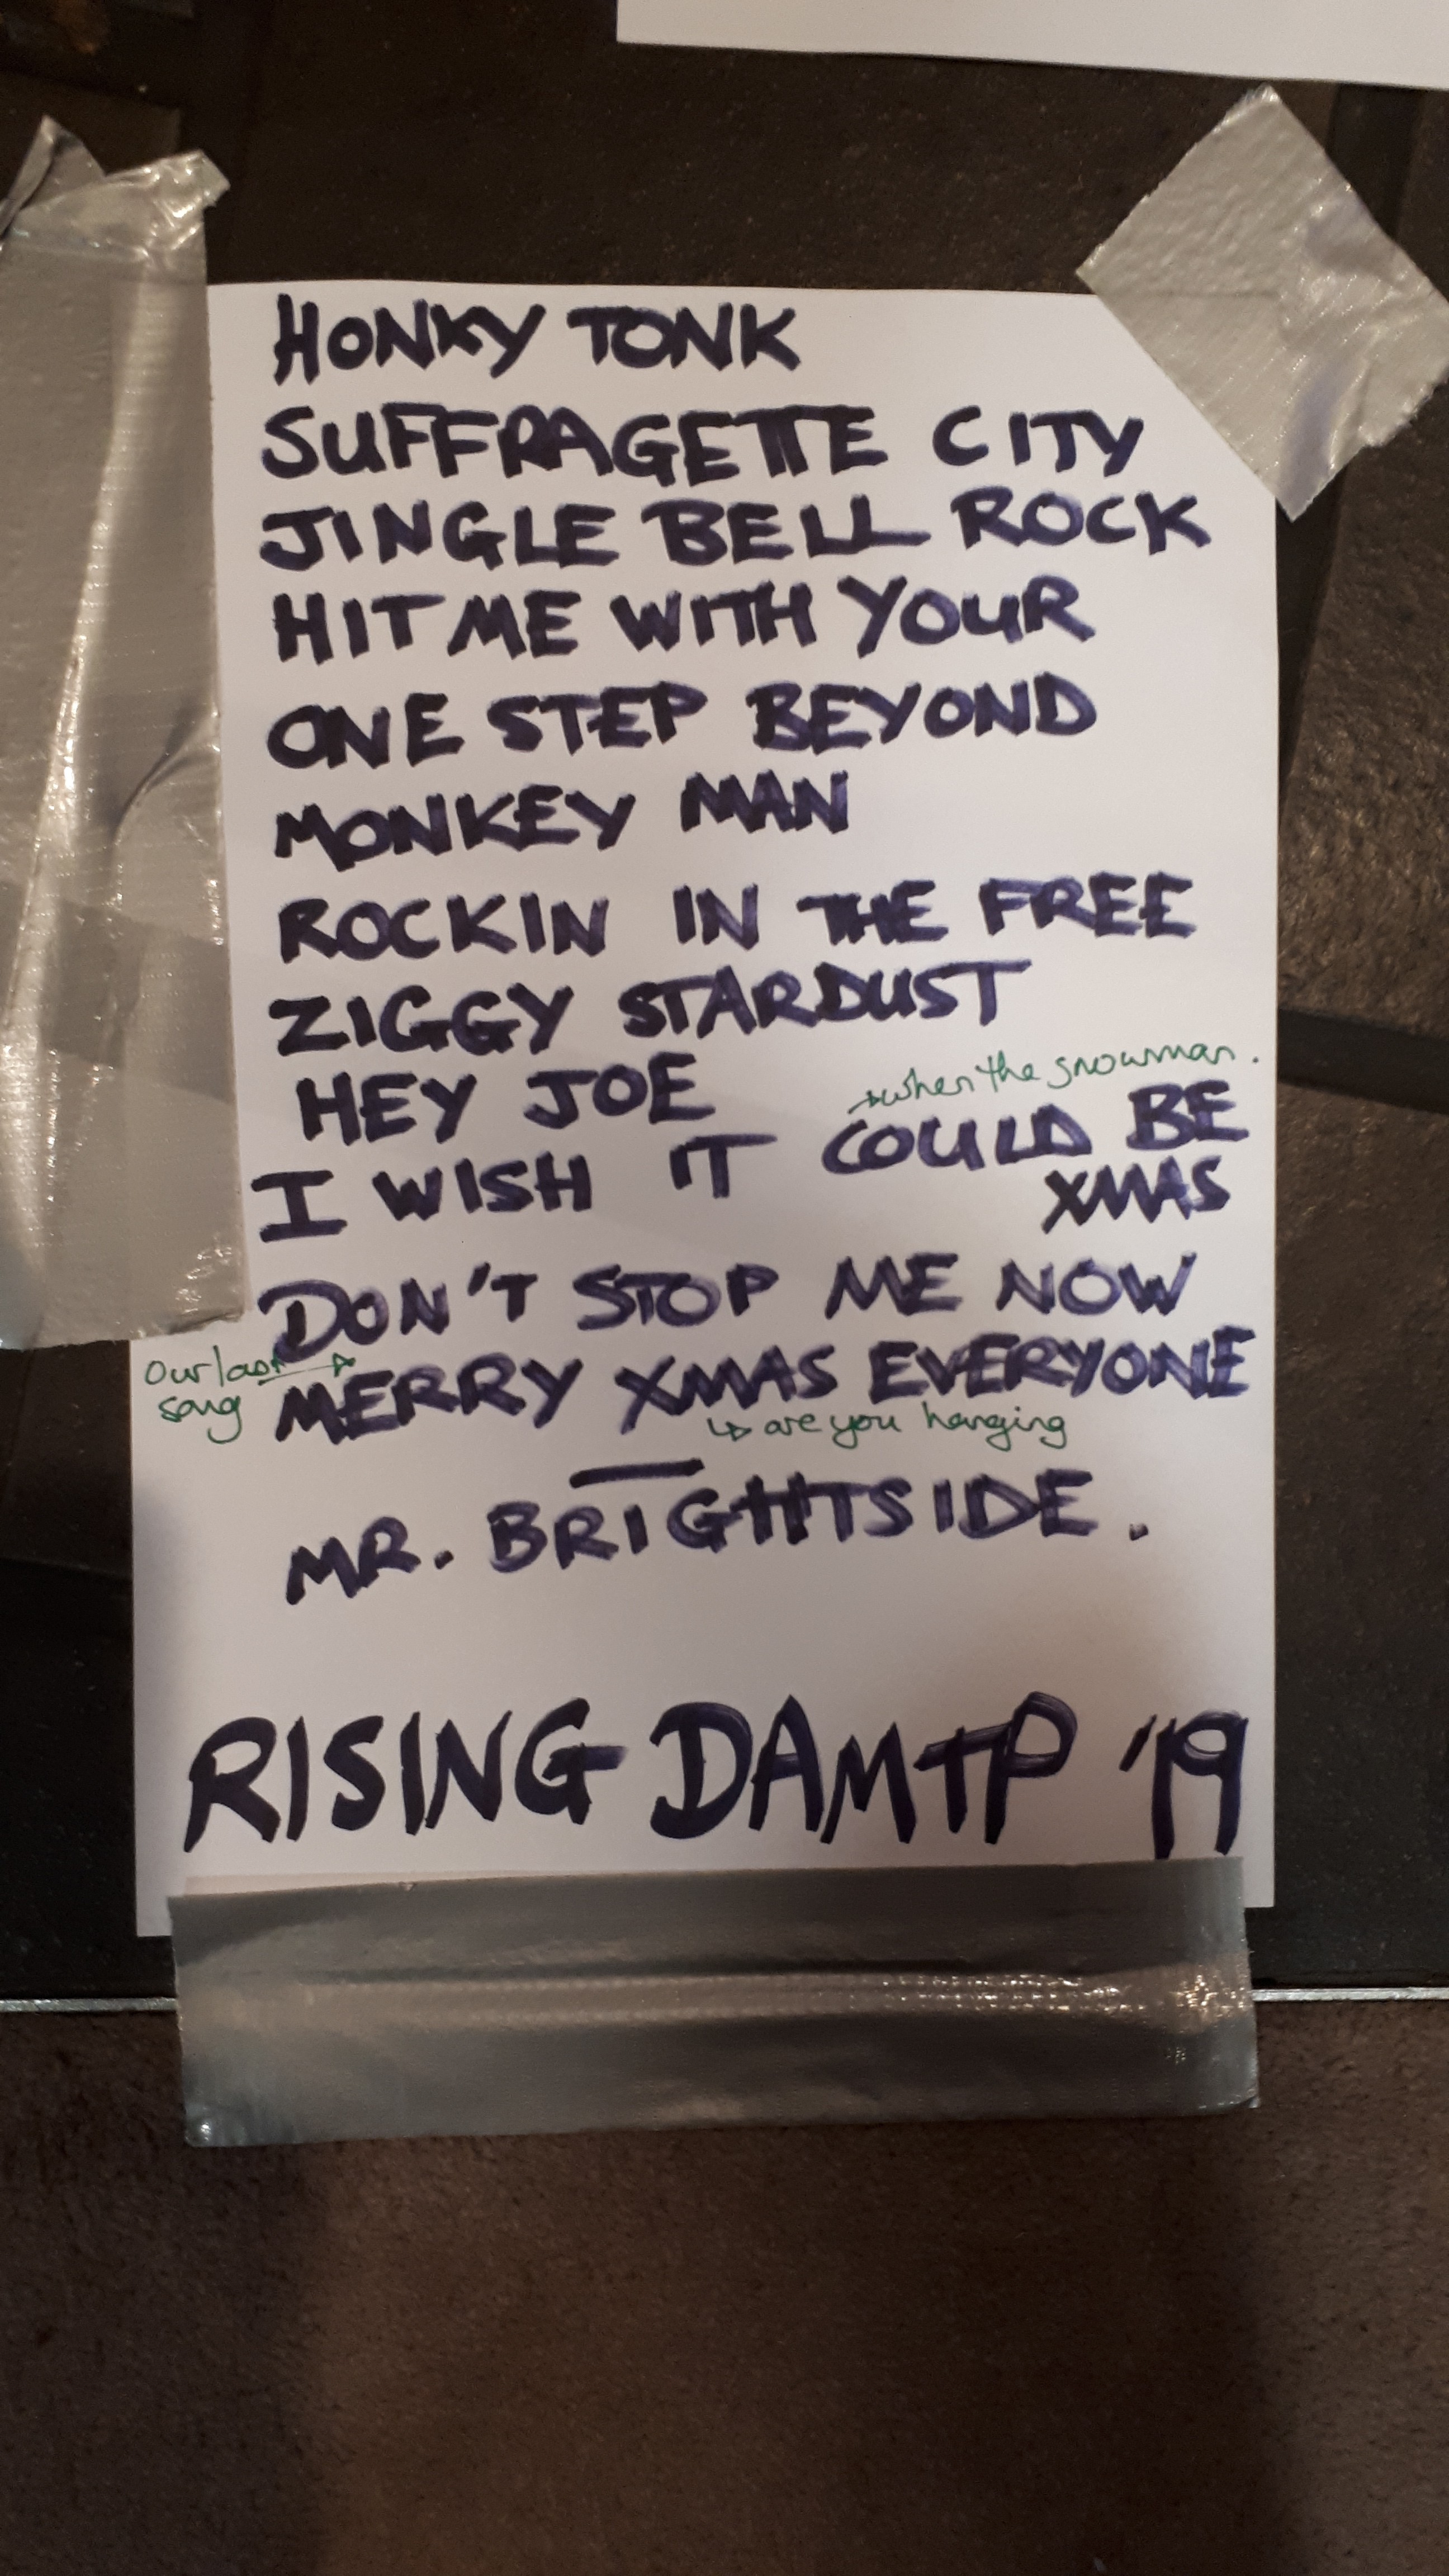 HONKY TONK
SUFFRAGETTE CITY
JINGLE BELL ROCK
HIT ME WITH YOUR
ONE STEP BEYOND
MONKEY MAN
ROCKIN IN THE FREE
ZIGGY STARDUST
HEY JOE
→when the snowman.
I WISH IT COULD BE
XMAS
DON'T STOP ME NOW
Our last →
song
MERRY XMAS EVERYONE
↳ are you hanging
MR. BRIGHTSIDE.
RISING DAMTP '19